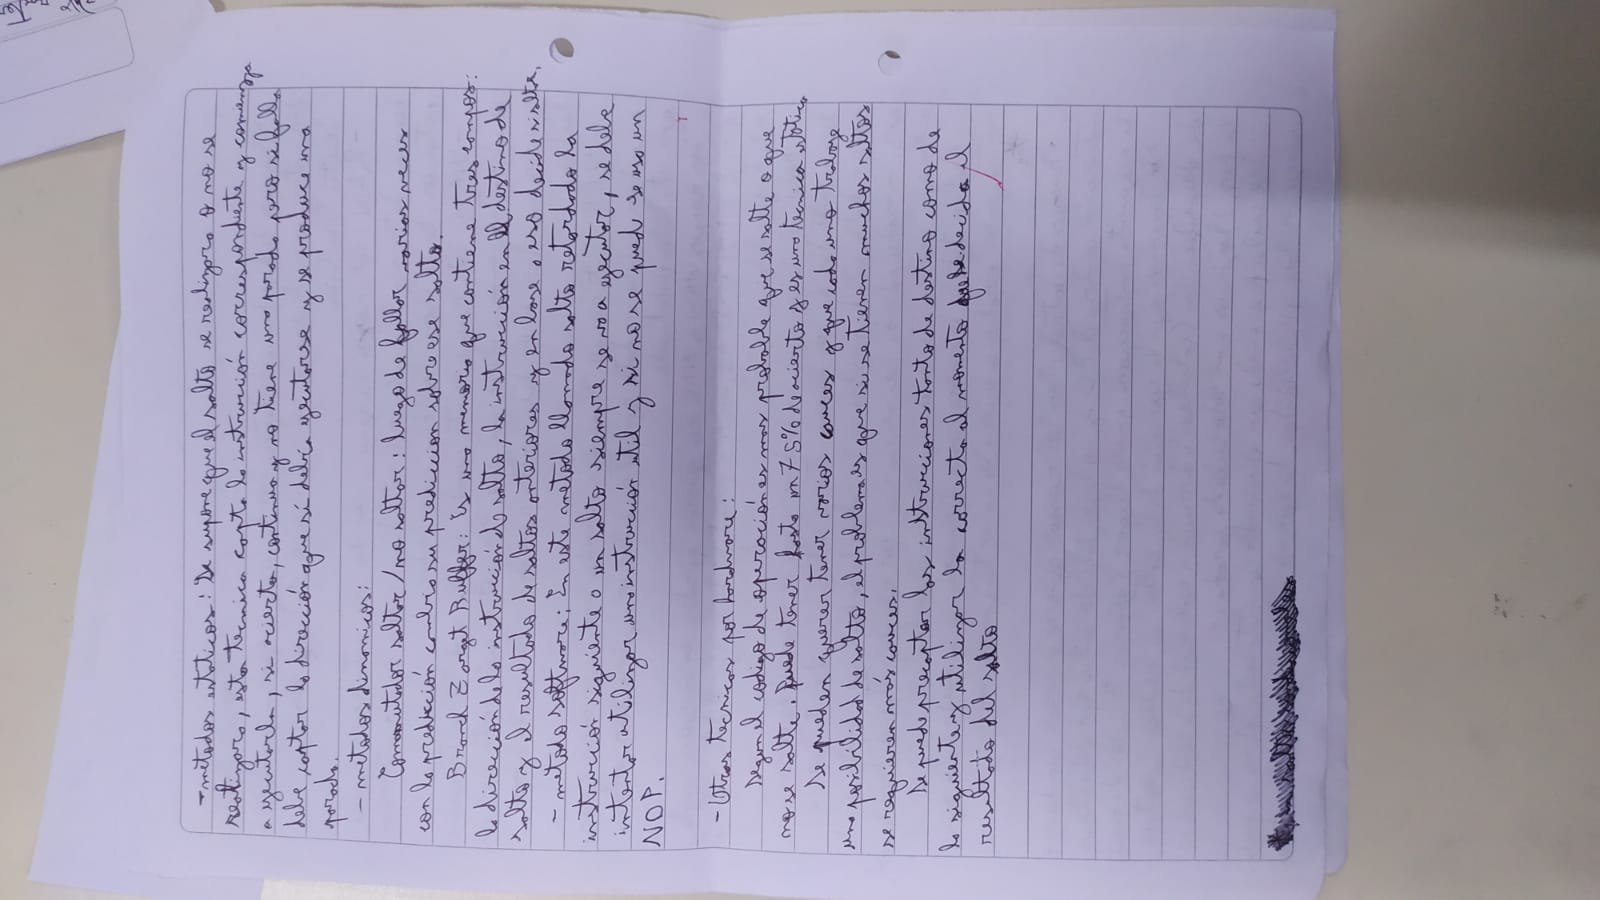 - métodos estáticos: Se supone que el salto se realizara o no se
realizara, esta tecnica capta la instrucción correspondiente y comienza
a ejecutarla, si acierta, continua y no tiene una parada, pero si falla
debe captar la dirección que si debía ejecutarse y se produce una
parada.
- métodos dinamicos:
Conmutador saltar/no saltar: luego de fallar varias veces
con la predicción cambia su prediccion sobre ese salto.
Branch Target Buffer: Es una memoria que contiene tres campos:
la dirección de la instrucción de salto, la instrucción en el destino de
salto y el resultado de saltos anteriores y en base a eso decide si salta.
- método software: En este metodo llamado salto retardado la
instrucción siguiente a un salto siempre se va a ejecutar, se debe
intentar utilizar una instrucción util y si no se puede se usa un
NOP.
- Otras tecnicas por hardware:
Segun el codigo de operación es mas probable que se salte o que
no se salte. Puede tener hasta un 75% de acierto y es una tecnica estática
Se pueden querer tener varios cauces y que cada uno trabaje
una posibilidad de salto, el problema es que si se tienen muchos saltos
se requieren más cauces.
Se puede precaptar las instrucciones tanto de destino como de
la siguiente y utilizar la correcta al momento que se decida el
resultado del salto